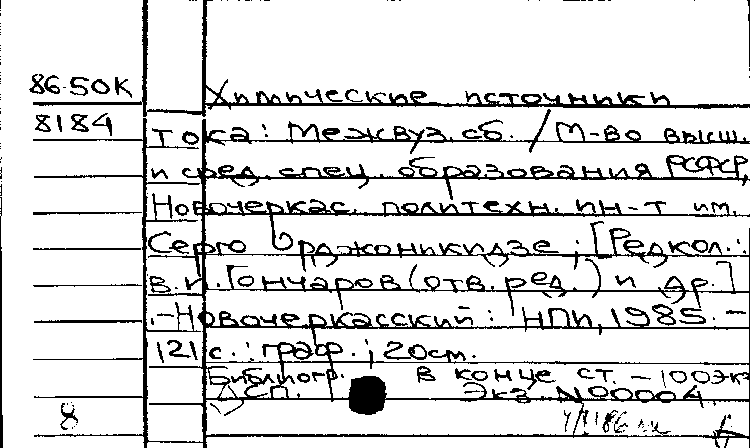 86-50К
Химические источники
8184
тока: Межвуз. сб. / М-во высш.
и сред. спец. образования РСФСР,
Новочеркас. политехн. ин-т им.
Серго Орджоникидзе; [Редкол.:
В.И. Гончаров (отв. ред.) и др.]
.-Новочеркасский: НПИ, 1985. -
121 с.: граф.; 20см.
Библиогр. в конце ст. - 100экз
ДСП. Экз. N00004.
8